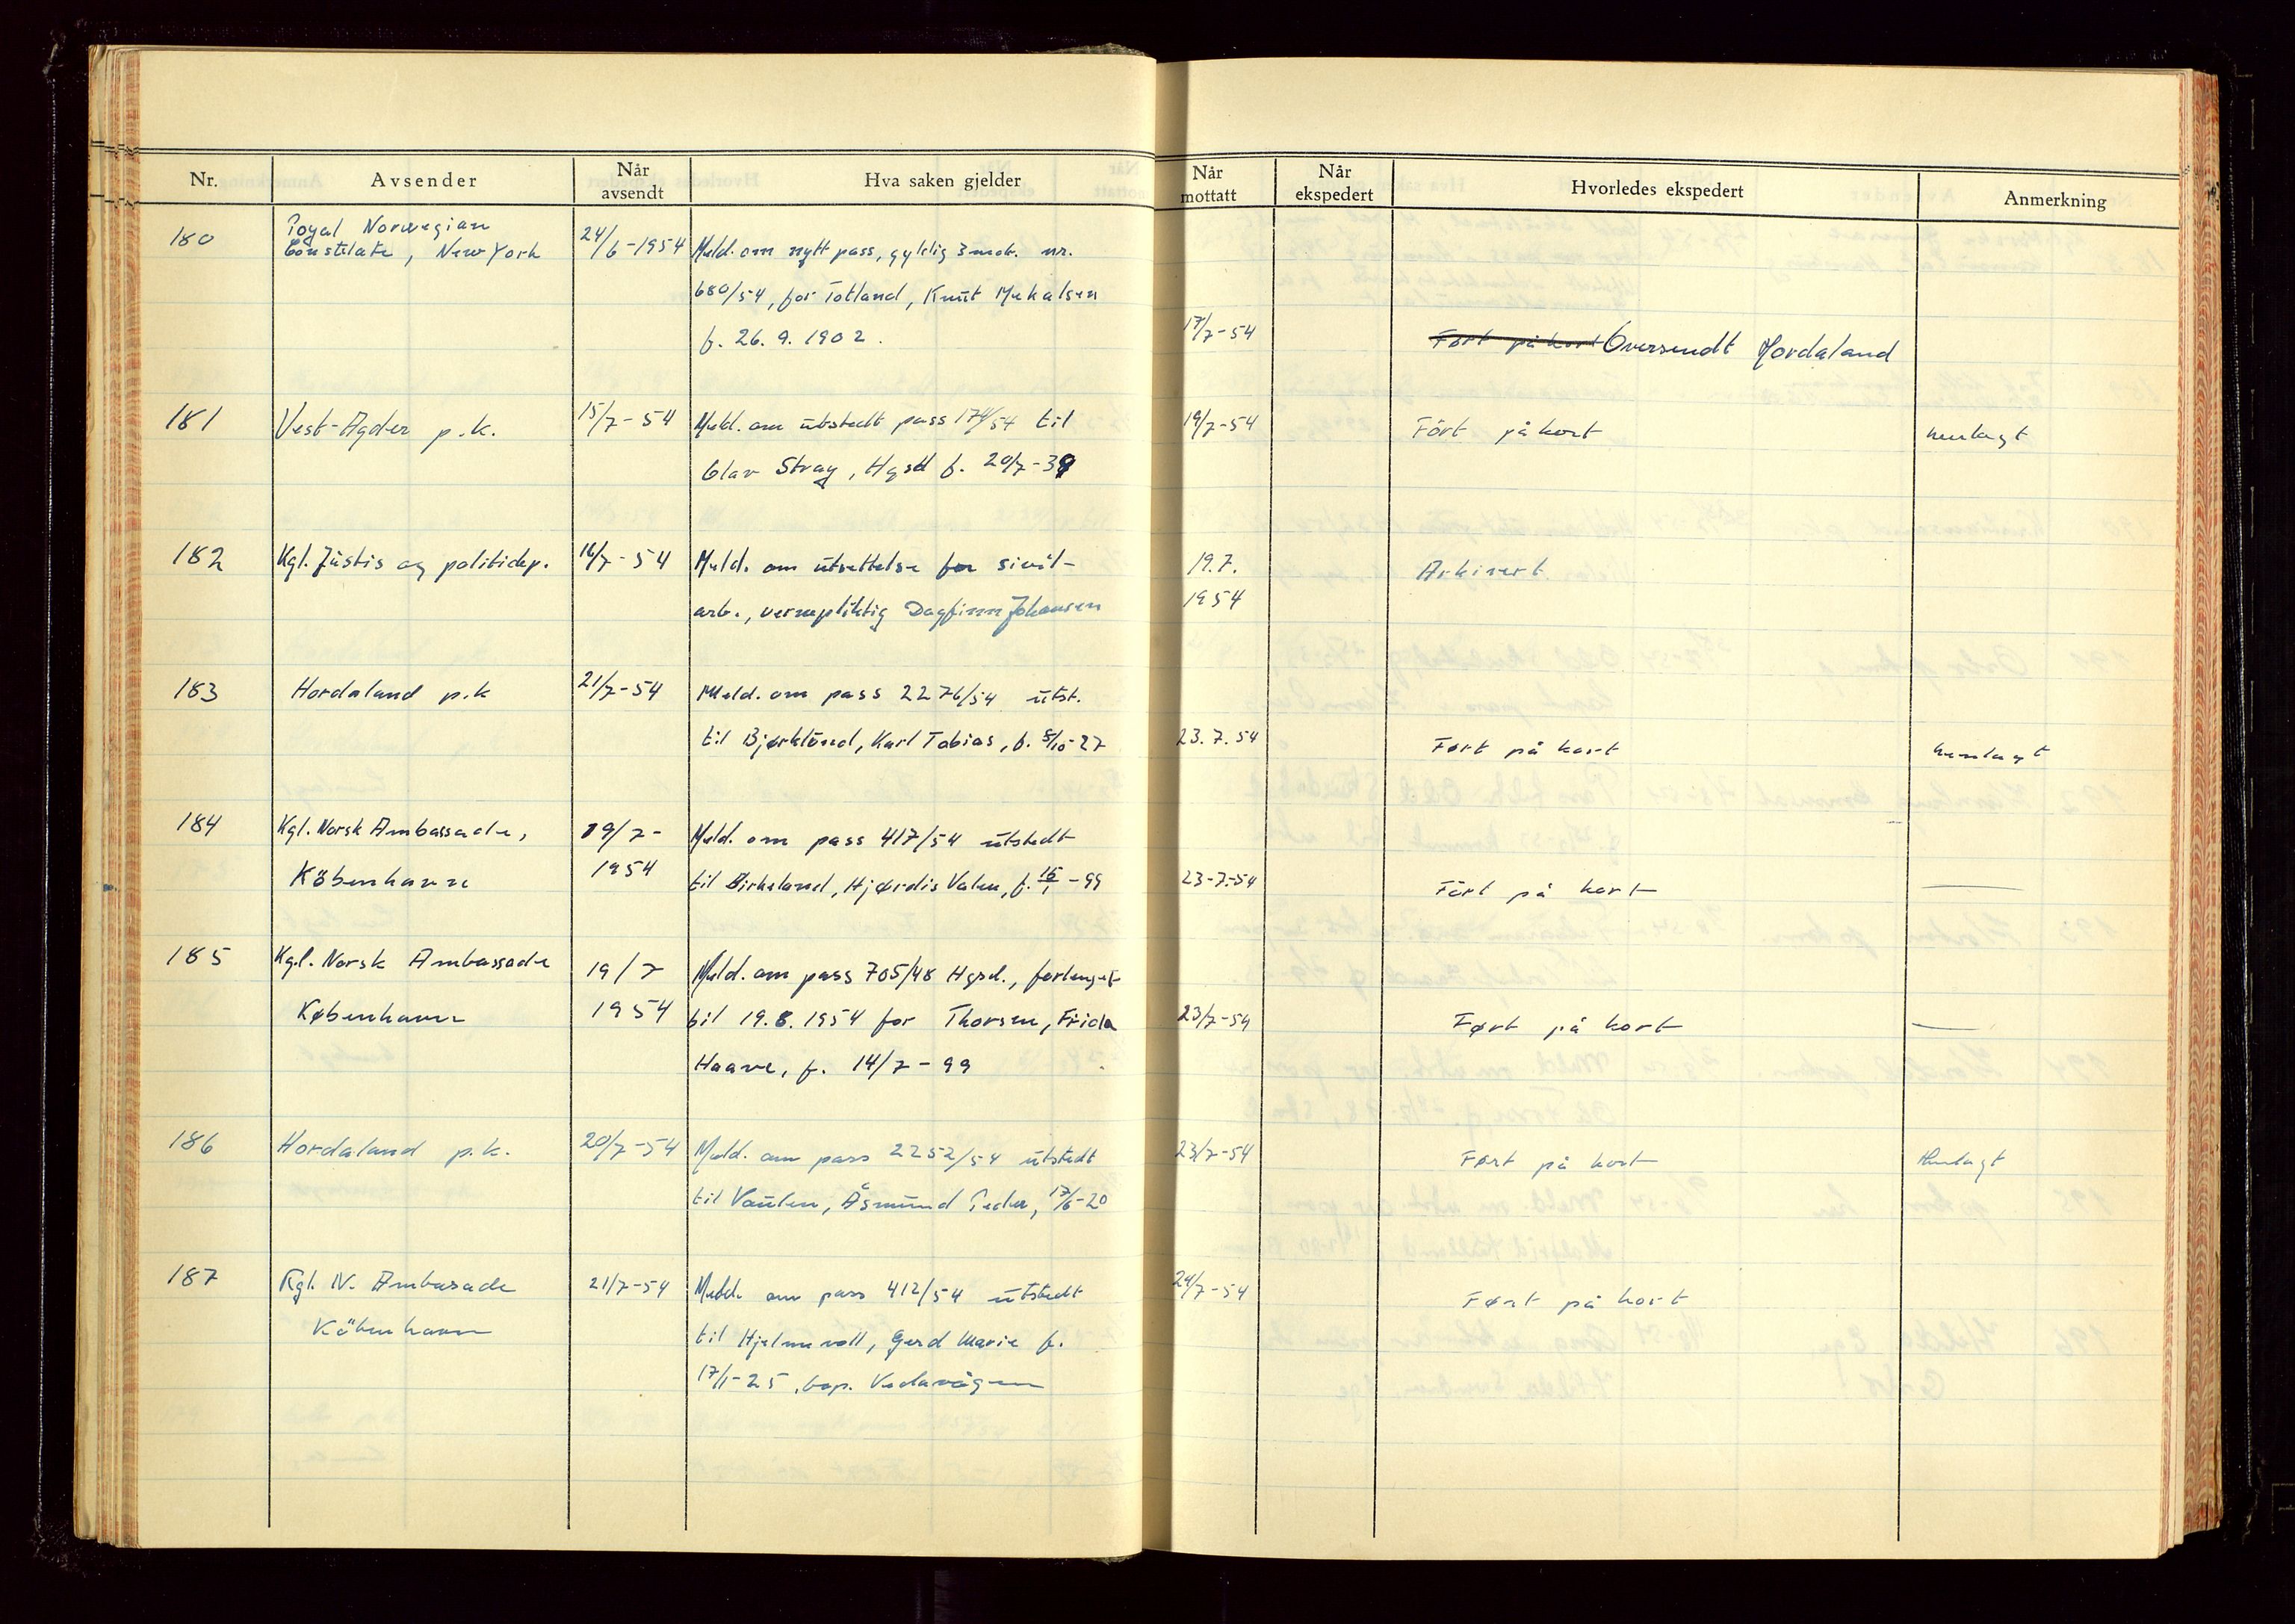 Nr.
Avsender
Når
avsendt
Hva saken gjelder
Når
mottatt
Når
ekspedert
Hvorledes ekspedert
Anmerkning
180
Royal Norwegian
Consulate, New York
24/6-1954
Meld. om nytt pass, gyldig 3 mdr. nr.
680/54, for Totland, Knut Mikalsen
f. 26.9.1902.
17/7-54
Ført på kort Oversendt Hordaland
181
Vest-Agder p.k.
15/7-54
Meld. om utstedt pass 174/54 til
Olav Stray, Hgsd f. 20/7-39
19/7-54
Fört på kort
henlagt
182
Kgl. Justis og politidep.
16/7-54
Meld. om utsettelse for sivil-
arb., vernepliktig Dagfinn Johansen
19.7.
1954
Arkivert
183
Hordaland p.k
21/7-54
Meld. om pass 2276/54 utst.
til Bjørklund, Karl Tobias, f. 8/10-27
23.7.54
Ført på kort
henlagt
184
Kgl. Norsk Ambassade,
Köbenhavn
19/7-
1954
Meld. om pass 417/54 utstedt
til Birkeland, Hjørdis Valen, f. 16/1-99
23-7-54
Fört på kort
185
Kgl. Norsk Ambassade
København
19/7
1954
Meld. om pass 705/48 Hgsd., forlenget
til 19.8.1954 for Thorsen, Frida
Haave, f. 14/7-99
23/7-54
Ført på kort
186
Hordaland p.k.
20/7-54
Meld. om pass 2252/54 utstedt
til Vaulen, Åsmund Peder, 17/6-20
23/7-54
Ført på kort
Henlagt
187
Kgl. N. Ambasade
Köbenhavn
21/7-54
Meld. om pass 412/54 utstedt
til Hjelmevoll, Gerd Marie f.
17/1-25, bop. Vedavågen
24/7-54
Ført på kort